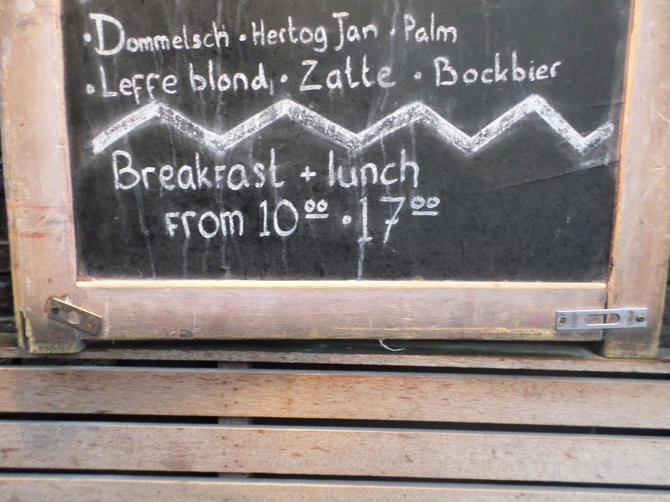 · Dommelsch · Hertog Jan · Palm
· Leffe blond, · Zatte · Bockbier
Breakfast + lunch
from 10⁰⁰ · 17⁰⁰